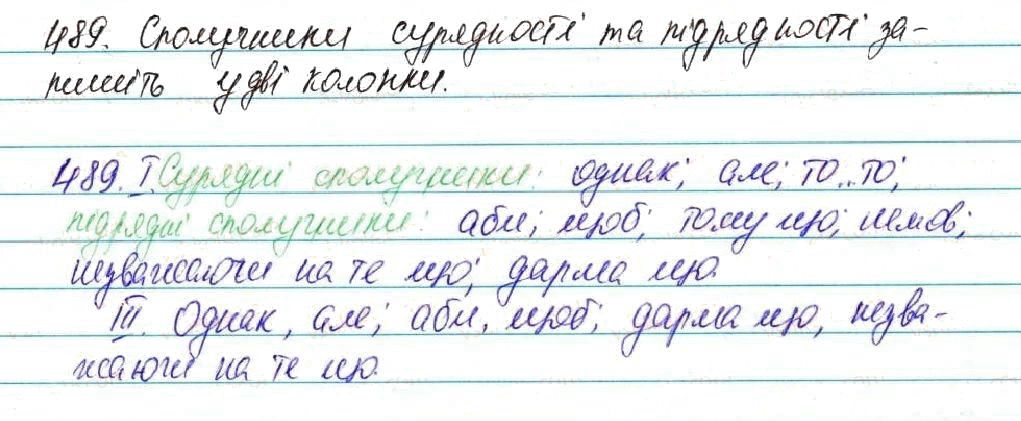 489. Сполучники сурядності та підрядності за-
пишіть у дві колонки.
489. I. Сурядні сполучники: однак; але; то..то;
підрядні сполучники: аби; щоб; тому що; немов;
незважаючи на те що; дарма що.
III. Однак, але; аби, щоб; дарма що, незва-
жаючи на те що.